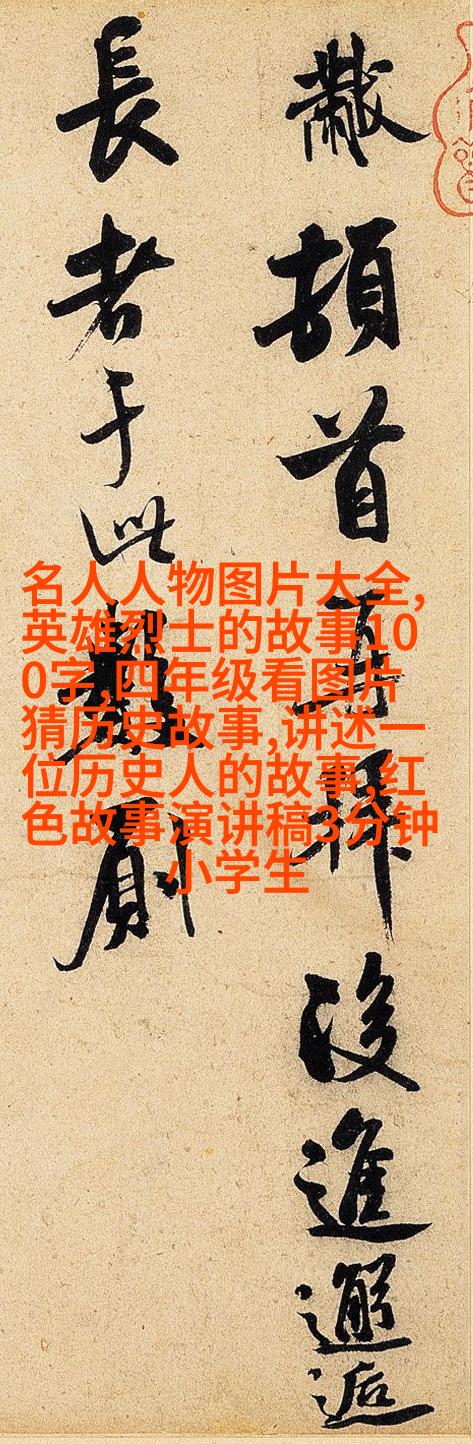 黻頓首再拜後進邂逅
長者于此數厠
名人人物图片大全,
英雄烈士的故事10
0字,四年级看图片
猜历史故事,讲述一
位历史人的故事,红
色故事演讲稿3分钟
小学生